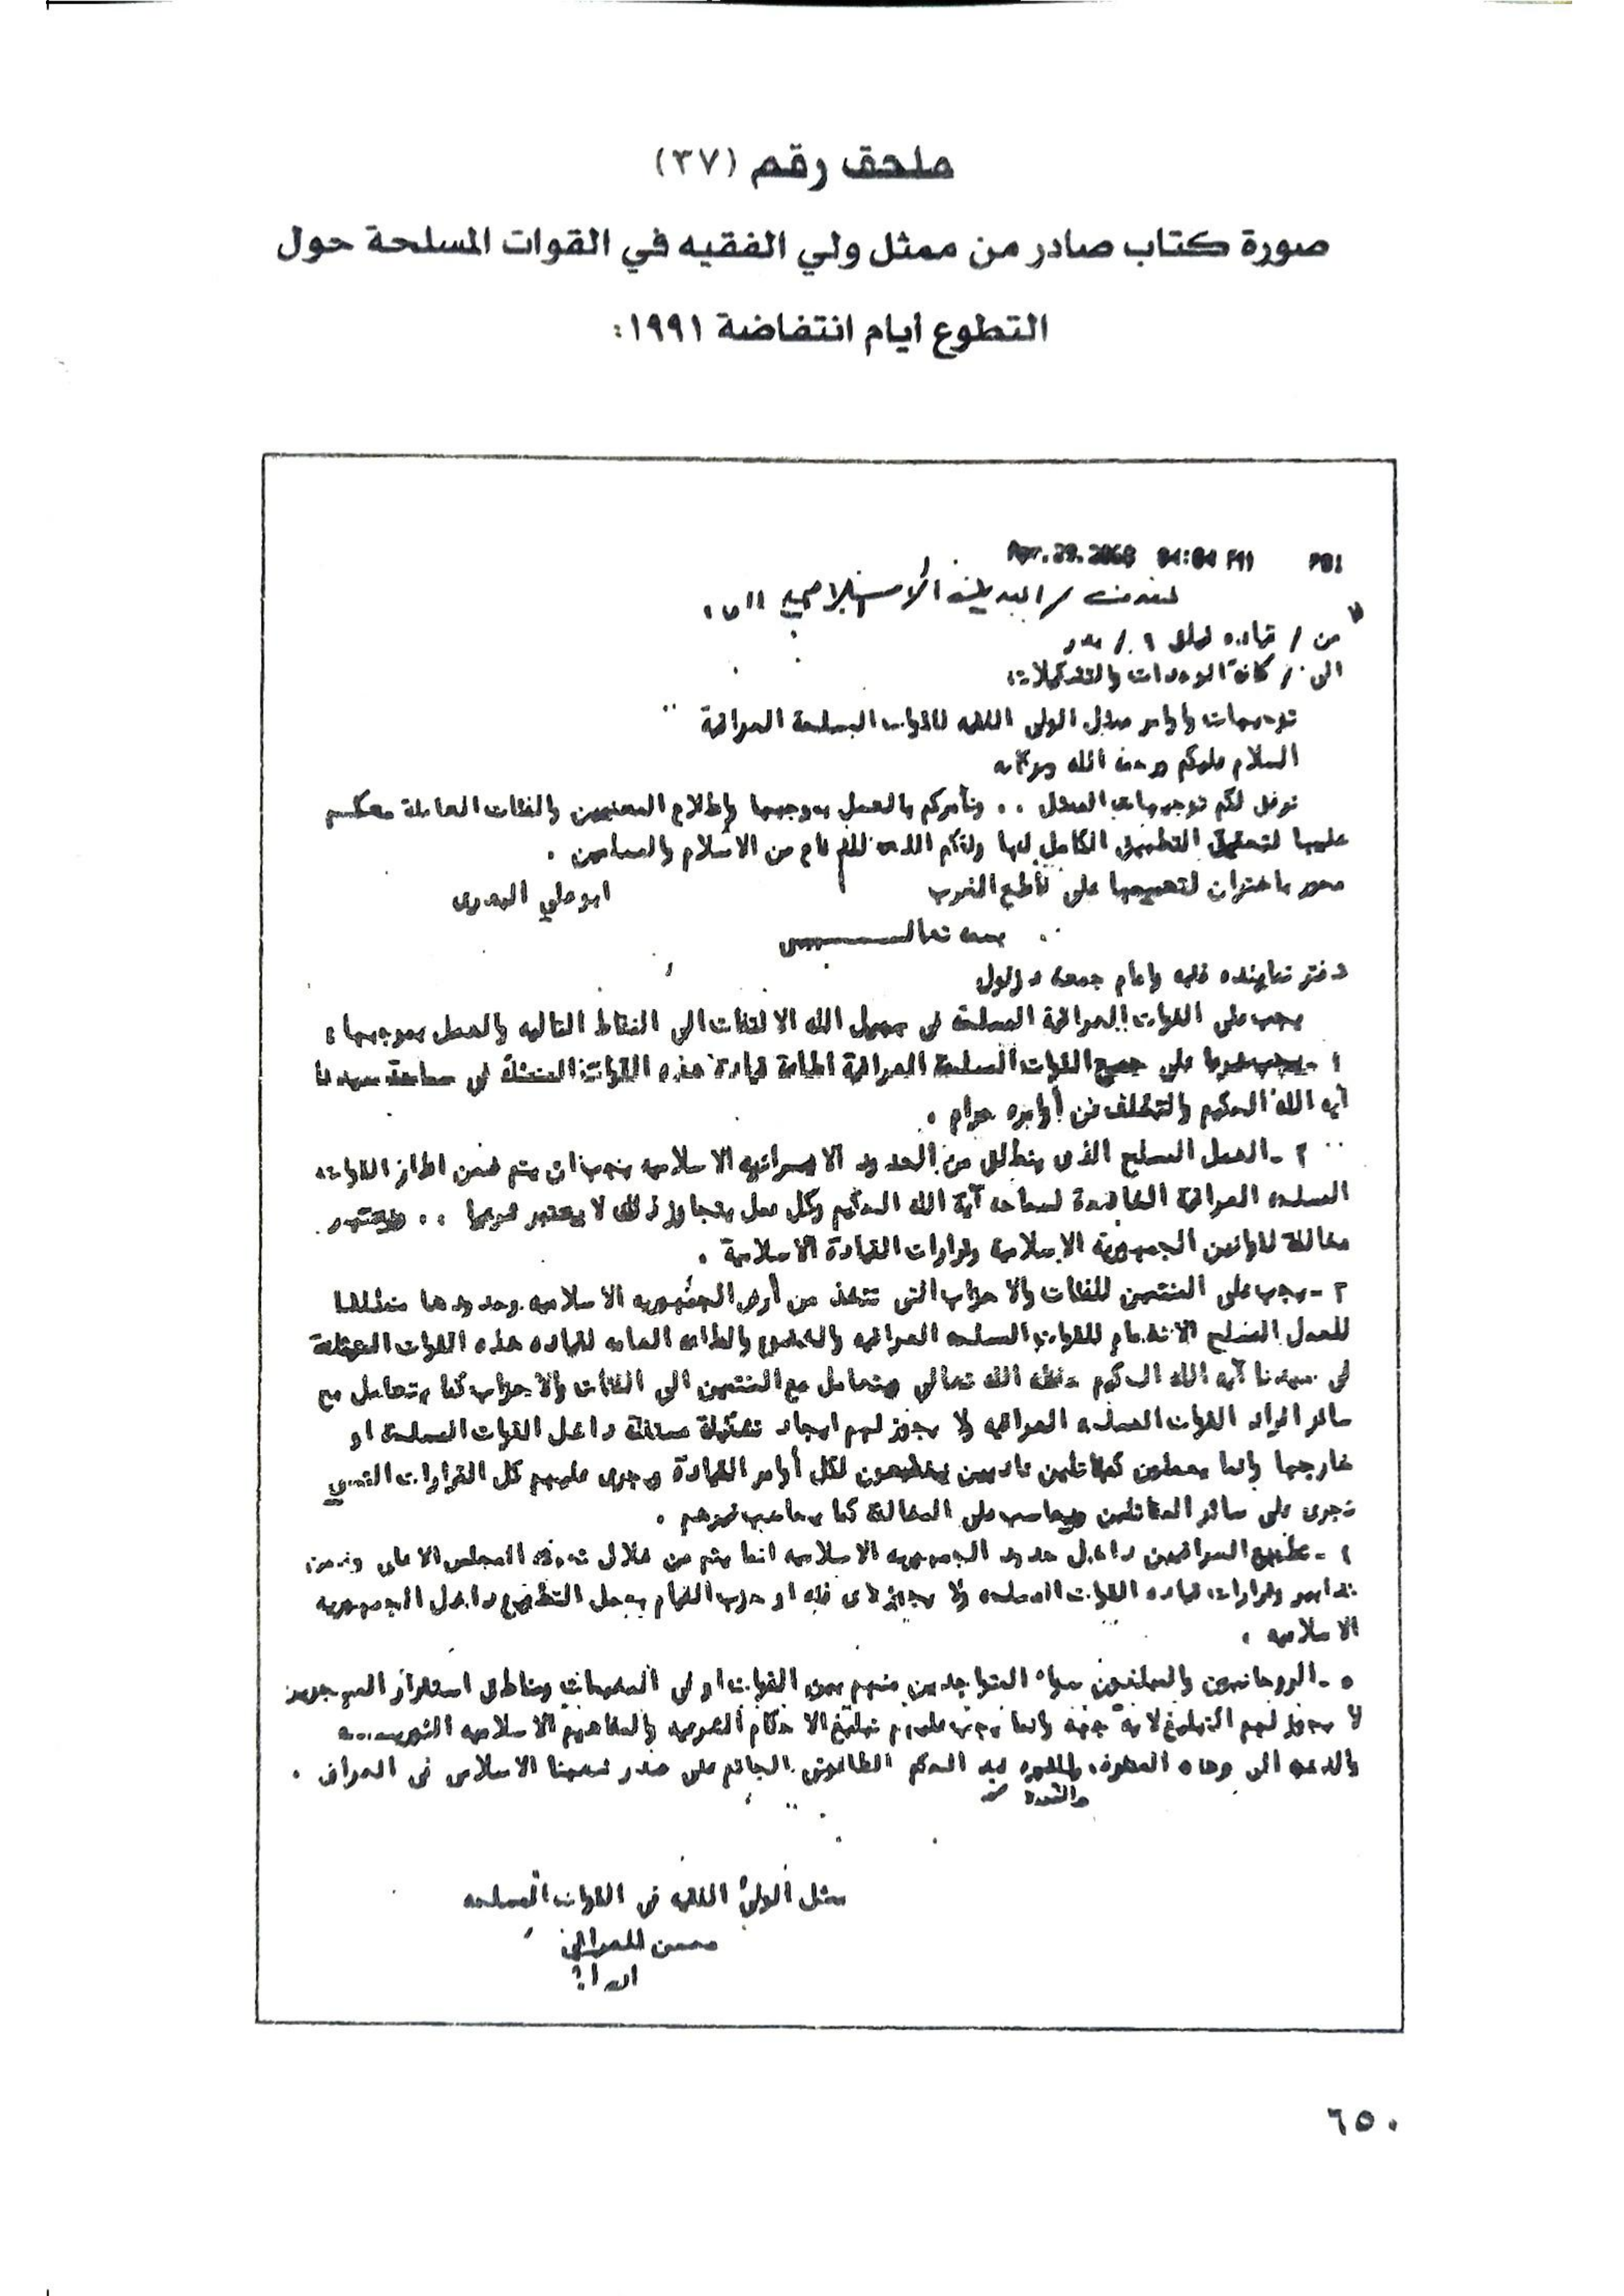 ملحق رقم (٣٧)
صورة كتاب صادر من ممثل ولي الفقيه في القوات المسلحة حول
التطوع أيام انتفاضة ١٩٩١:
من / قيادة فيلق ٩ / بدر
الى / كافة الوحدات والتشكيلات
توجيهات واوامر ممثل الولي الفقيه للقوات المسلحة العراقية
السلام عليكم ورحمة الله وبركاته
نرفق لكم توجيهات الممثل .. ونأمركم بالعمل بموجبها واطلاع المعنيين والفئات العاملة معكم
عليها لتحقيق التطبيق الكامل لها وفقكم الله للدفاع عن الاسلام والمسلمين .
محور باختران لتعميمها على قاطع الغرب
ابو علي البصري
بسمه تعالى
دفتر نماينده فقيه وامام جمعه دزفول
يجب على القوات العراقية المسلحة في سبيل الله الالتفات الى النقاط التاليه والعمل بموجبها :
١ - يجب شرعا على جميع القوات المسلحة العراقية اطاعة قيادة هذه القوات المتمثلة في سماحة سيدنا
آية الله الحكيم والتخلف عن أوامره حرام .
٢ - العمل المسلح الذى ينطلق من الحدود الايرانيه الاسلاميه يجب ان يتم ضمن اطار القوات
المسلحه العراقية الخاضعة لسماحه آية الله الحكيم وكل عمل يتجاوز ذلك لا يعتبر شرعيا .. ويعتبر
مخالفة لقوانين الجمهورية الاسلاميه وقرارات القيادة الاسلامية .
٣ - يجب على المنتمين للفئات والاحزاب التى تتخذ من أرض الجمهوريه الاسلاميه وحدودها منطلقا
للعمل المسلح الانضمام للقوات المسلحه العراقيه والخضوع والطاعه التامه لقياده هذه القوات المتمثلة
في سيدنا آيه الله الحكيم حفظه الله تعالى ويتعامل مع المنتمين الى الفئات والاحزاب كما يتعامل مع
سائر افراد القوات المسلحه العراقيه ولا يجوز لهم ايجاد تشكيلة مستقلة داخل القوات المسلحة او
خارجها وانما يعملون كمقاتلين عاديين يخضعون لكل أوامر القيادة ويجرى عليهم كل القرارات التي
تجرى على سائر المقاتلين ويحاسب على المخالفة كما يحاسب غيرهم .
٤ - تطويع العراقيين داخل حدود الجمهوريه الاسلاميه انما يتم من خلال المجلس الاعلى وضمن
تدابير وقرارات قياده القوات المسلحه ولا يجوز لاى فئه او حزب القيام بعمل التطويع داخل الجمهوريه
الاسلاميه .
٥ - الروحانيين والمبلغون سواء المتواجدين منهم بين القوات او في المخيمات ومناطق استقرار
لا يجوز لهم التبليغ لاية جهة وانما يجب عليهم تبليغ الاحكام الشرعيه والمفاهيم الاسلاميه
والدعوه الى وحده الصفوف والثوره ضد الحكم الطاغوتى الجاثم على صدر شعبنا الاسلامى في العراق .
ممثل الولي الفقيه في القوات المسلحه
محسن العراقي
٦٥٠